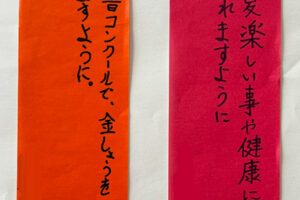 楽しい事や健康に
れますように
コンクールで、金しょうを
すように。